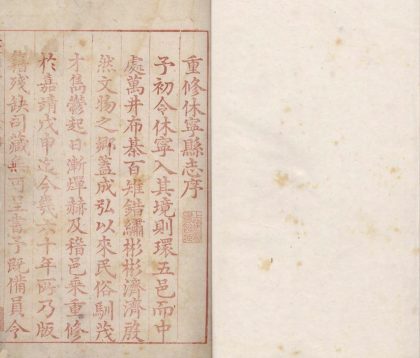 重修休寧縣志序
予初令休寧入其境則環五邑而中
處萬井布棊百雉錯繡彬彬濟濟殷
然文物之鄉蓋成弘以來民俗馴茂
才雋鬱起日漸煇赫及稽邑乘重修
於嘉靖戊申迄今幾六十年所乃版
籍殘缺司藏無可呈書予既備員令